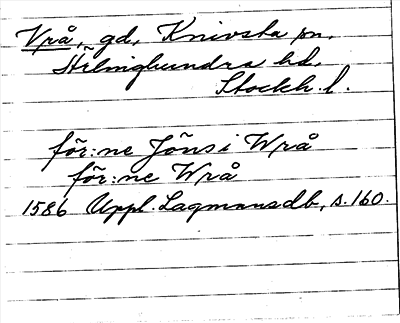 Vrå, gd, Knivsta sn,
Ärlinghundra hd,
Stockh. l.
för:ne Jöns i Wrå
för:ne Wrå
1586 Uppl. Lagmansdb, s. 160.